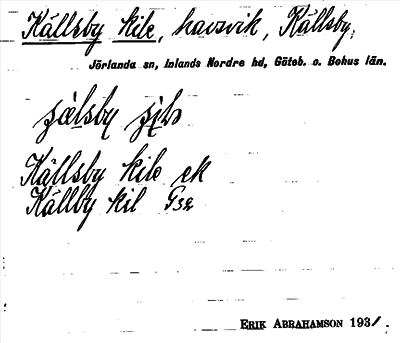 Källsby kile, havsvik, Källsby.
Jörlanda sn, Inlands Nordre hd, Göteb. o. Bohus län.
Källsby kile ek
Källby kil G32
ERIK ABRAHAMSON 1931.